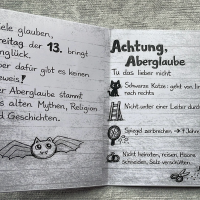 iele glauben,
reitag der 13. bringt
nglück.
ber dafür gibt es keinen
eweis!
er Aberglaube stammt
s alten Mythen, Religion
d Geschichten.
Achtung,
Aberglaube
Tu das lieber nicht
Schwarze Katze: geht von l
nach rechts
Nicht unter einer Leiter durch
Spiegel zerbrechen. → 7 Jahre
Nicht heiraten, reisen, Haare
schneiden, Salz verschütten...